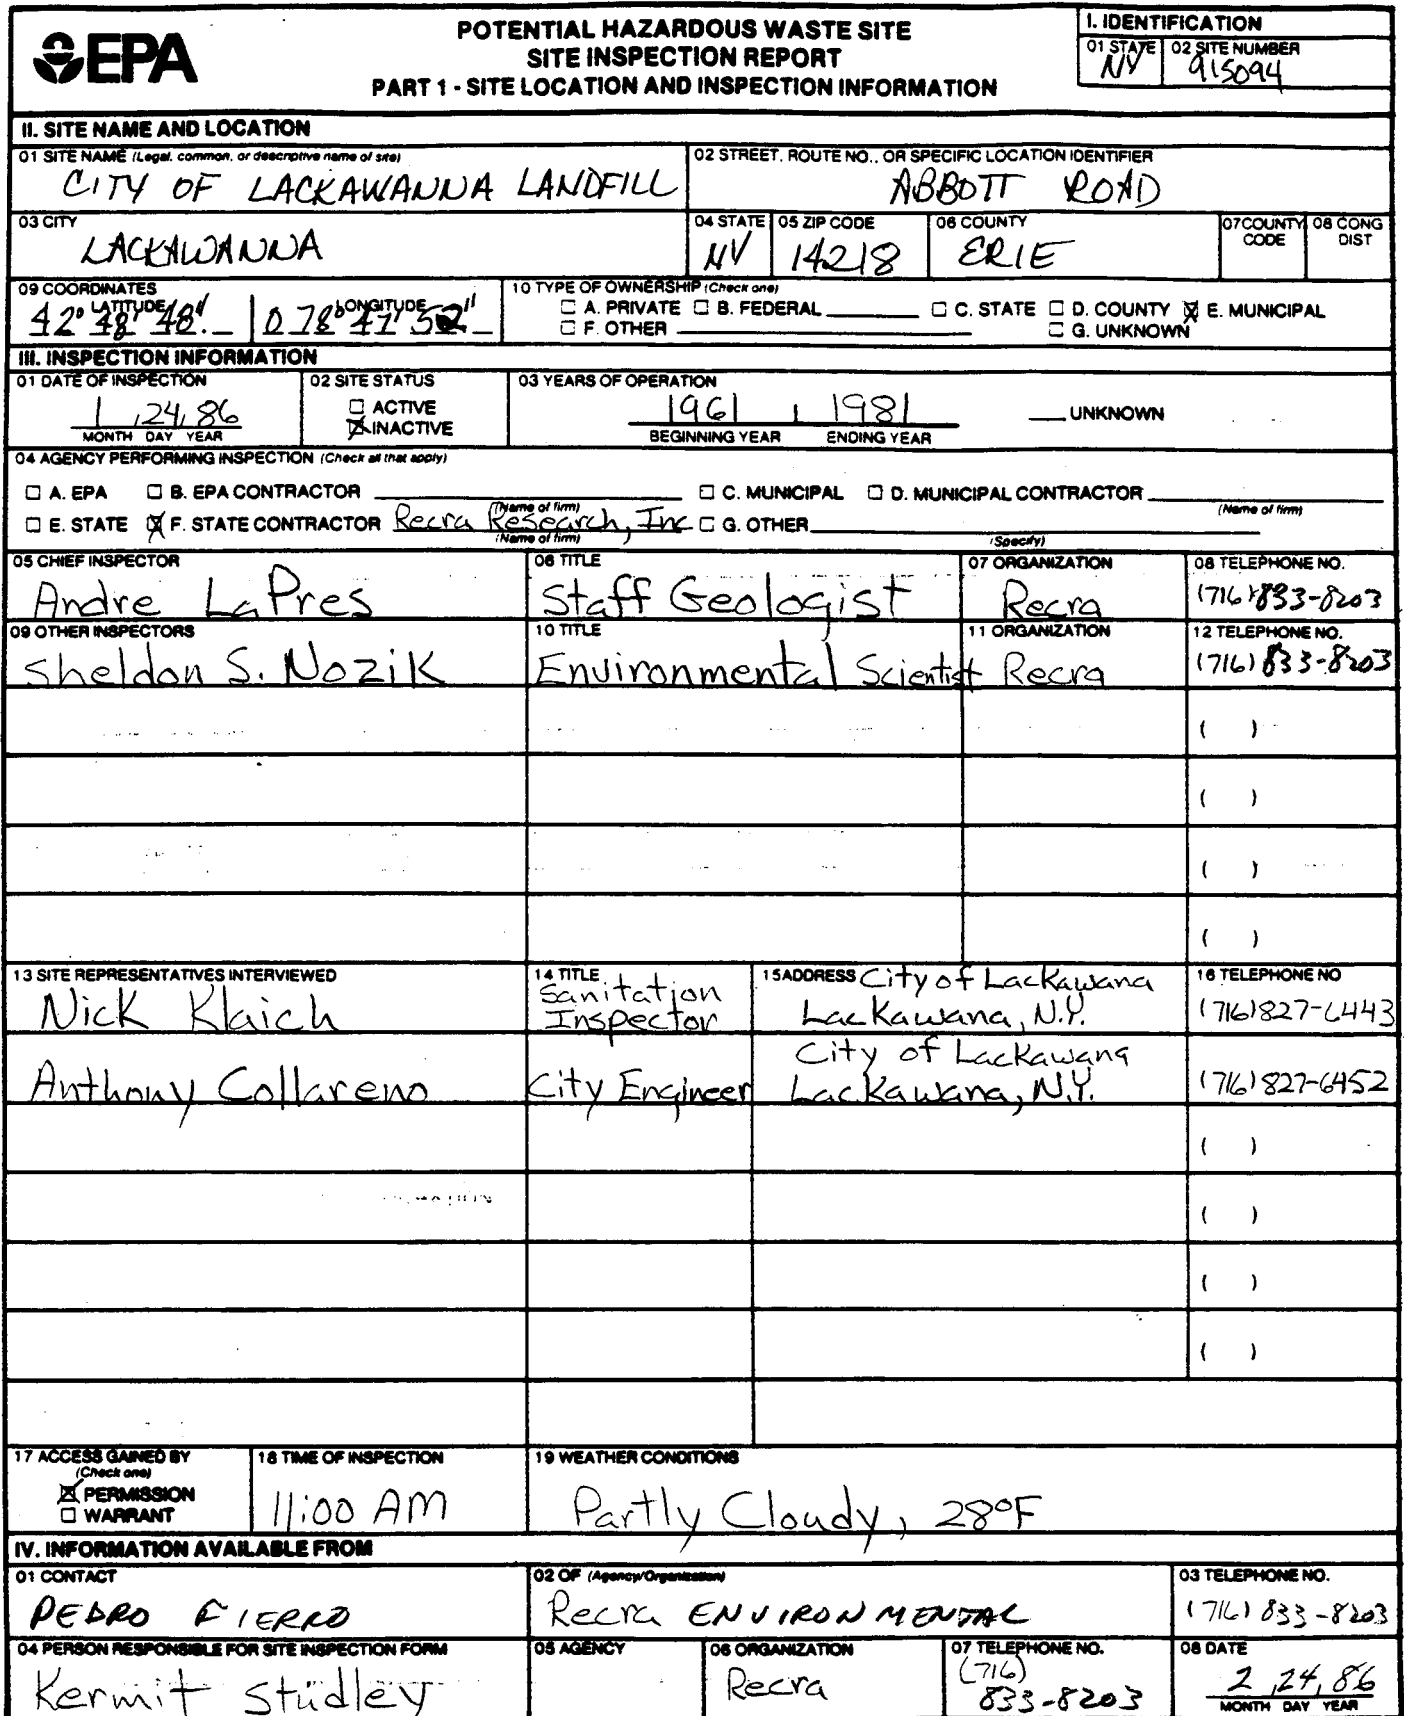 EPA
POTENTIAL HAZARDOUS WASTE SITE
SITE INSPECTION REPORT
PART 1 - SITE LOCATION AND INSPECTION INFORMATION
I. IDENTIFICATION
01 STATE 02 SITE NUMBER
NY 915094
II. SITE NAME AND LOCATION
01 SITE NAME (Legal, common, or descriptive name of site)
CITY OF LACKAWANNA LANDFILL
02 STREET, ROUTE NO., OR SPECIFIC LOCATION IDENTIFIER
ABBOTT ROAD
03 CITY
LACKAWANNA
04 STATE
NY
05 ZIP CODE
14218
06 COUNTY
ERIE
07 COUNTY CODE
08 CONG DIST
09 COORDINATES
LATITUDE LONGITUDE
42° 48' 48" 078° 47' 52"
10 TYPE OF OWNERSHIP (Check one)
☐ A. PRIVATE ☐ B. FEDERAL ☐ C. STATE ☐ D. COUNTY ☒ E. MUNICIPAL
☐ F. OTHER ☐ G. UNKNOWN
III. INSPECTION INFORMATION
01 DATE OF INSPECTION
1, 24, 86
MONTH DAY YEAR
02 SITE STATUS
☐ ACTIVE
☒ INACTIVE
03 YEARS OF OPERATION
1961 | 1981
BEGINNING YEAR ENDING YEAR
UNKNOWN
04 AGENCY PERFORMING INSPECTION (Check all that apply)
☐ A. EPA ☐ B. EPA CONTRACTOR (Name of firm) ☐ C. MUNICIPAL ☐ D. MUNICIPAL CONTRACTOR (Name of firm)
☐ E. STATE ☒ F. STATE CONTRACTOR Recra Research, Inc (Name of firm) ☐ G. OTHER (Specify)
05 CHIEF INSPECTOR
Andre LaPres
06 TITLE
Staff Geologist
07 ORGANIZATION
Recra
08 TELEPHONE NO.
(716) 833-8203
09 OTHER INSPECTORS
Sheldon S. Nozik
10 TITLE
Environmental Scientist
11 ORGANIZATION
Recra
12 TELEPHONE NO.
(716) 833-8203
( )
( )
( )
( )
13 SITE REPRESENTATIVES INTERVIEWED
Nick Klaich
14 TITLE
Sanitation
Inspector
15 ADDRESS
City of Lackawana
Lackawana, N.Y.
16 TELEPHONE NO
(716) 827-6443
Anthony Collareno
City Engineer
City of Lackawana
Lackawana, N.Y.
(716) 827-6452
( )
( )
( )
( )
17 ACCESS GAINED BY
(Check one)
☒ PERMISSION
☐ WARRANT
18 TIME OF INSPECTION
11:00 AM
19 WEATHER CONDITIONS
Partly Cloudy, 28°F
IV. INFORMATION AVAILABLE FROM
01 CONTACT
PEDRO FIERRO
02 OF (Agency/Organization)
Recra ENVIRONMENTAL
03 TELEPHONE NO.
(716) 833-8203
04 PERSON RESPONSIBLE FOR SITE INSPECTION FORM
Kermit Studley
05 AGENCY
06 ORGANIZATION
Recra
07 TELEPHONE NO.
(716)
833-8203
08 DATE
2, 24, 86
MONTH DAY YEAR